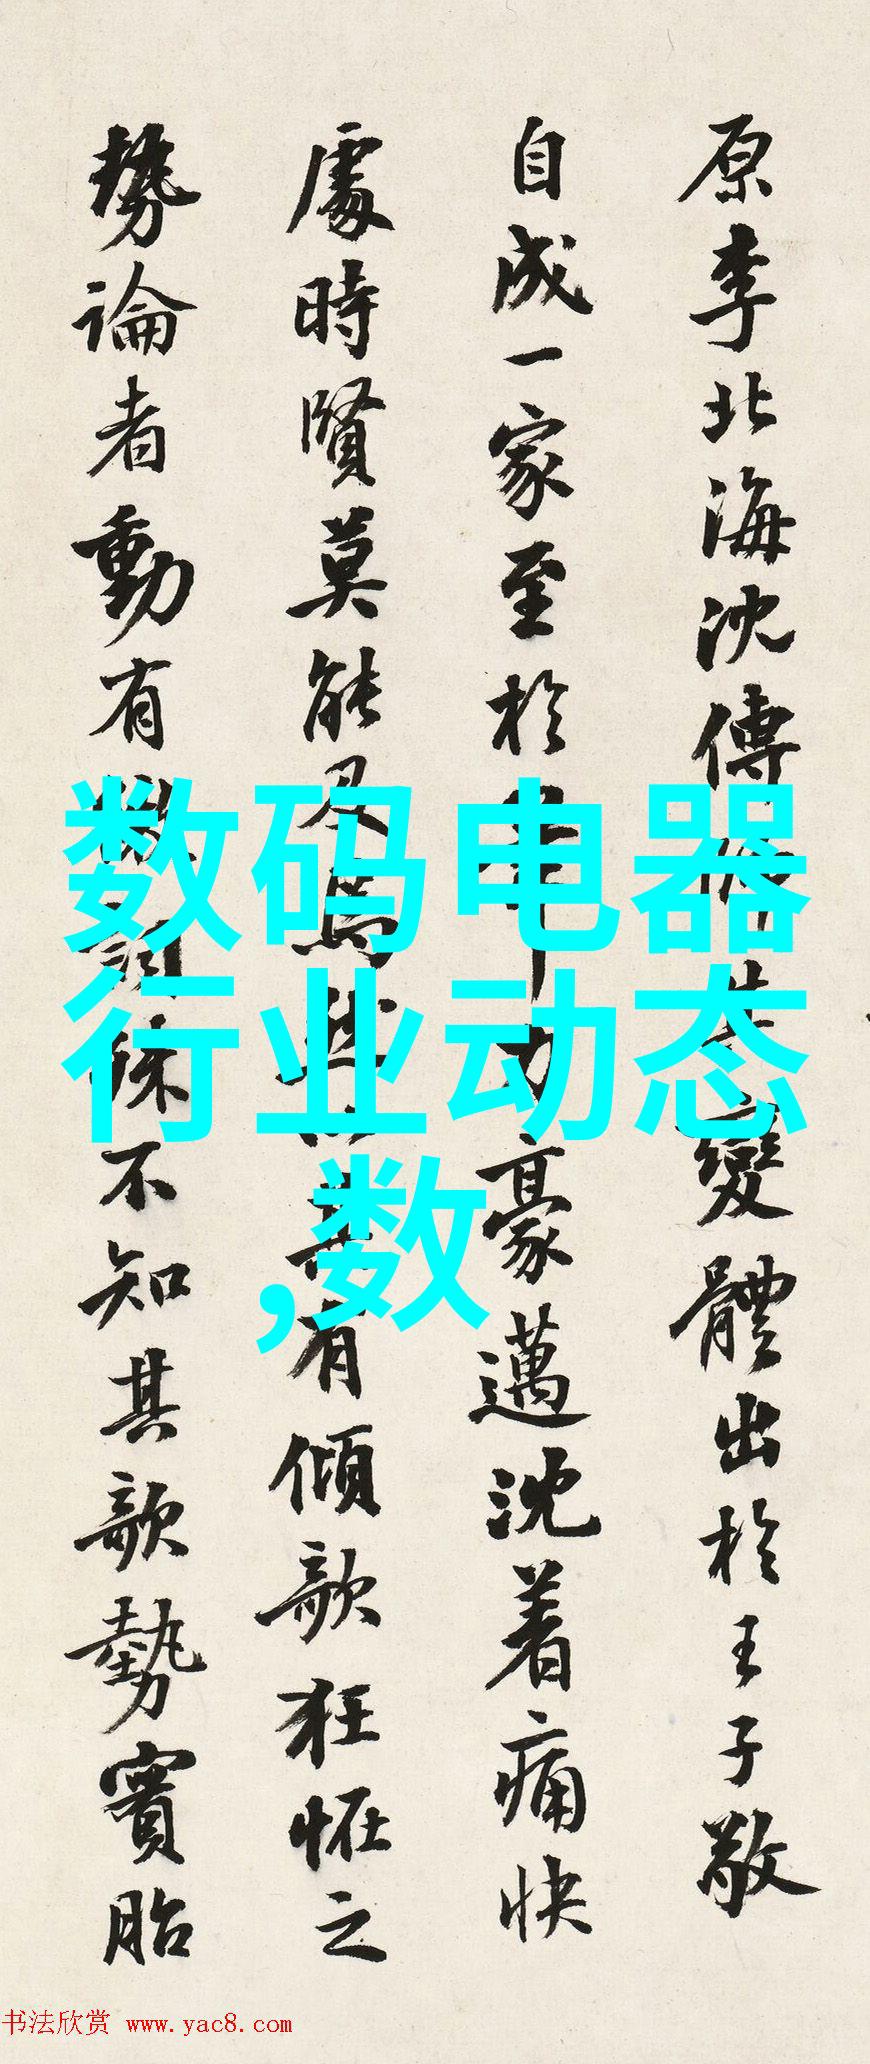 原李北海沈傳師皆變體出於王子敬
自成一家至於筆力豪邁沈着痛快
處時賢莫能及焉然以昔有傾欹狂怪之
勢論者動有微詞殊不知其欹勢實胎
数码电器
行业动态
,数
书法欣赏 www.yac8.com